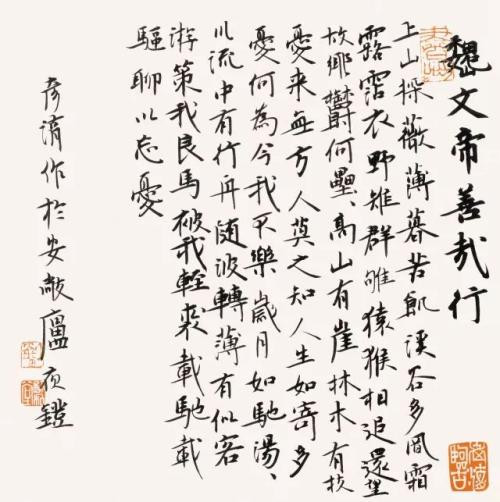 魏文帝善哉行
上山採薇薄暮苦飢溪谷多風霜
露霑衣野雉群雊猿猴相追還望
故鄉鬱何壘、高山有崖林木有枝
憂来無方人莫之知人生如寄多
憂何為今我不樂歲月如馳湯、
川流中有行舟随波轉薄有似客
游策我良馬被我輕裘載馳載
驅聊以忘憂
作於安敞廬夜鐙